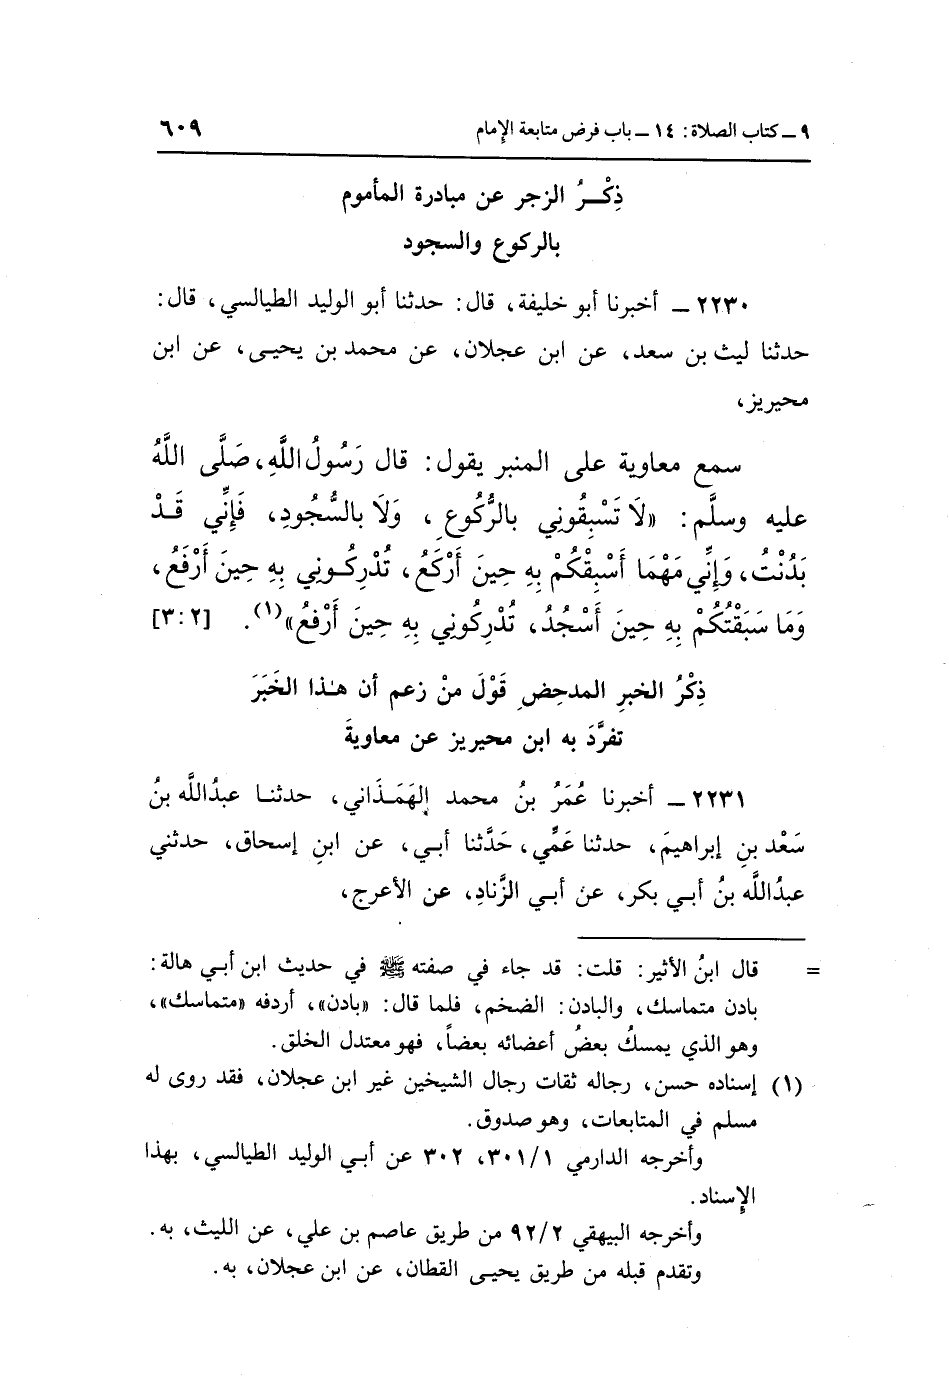 ٩ ـ كتاب الصلاة : ١٤ ـ باب فرض متابعة الإمام ٦٠٩
ذِكْرُ الزجر عن مبادرة المأموم
بالركوع والسجود
٢٢٣٠ ـ أخبرنا أبو خليفة، قال : حدثنا أبو الوليد الطيالسي، قال :
حدثنا ليث بن سعد، عن ابن عجلان، عن محمد بن يحيـى، عن ابن
محيريز،
سمع معاوية على المنبر يقول : قال رَسُولُ اللَّهِ، صَلَّى اللَّهُ
عليه وسلَّم : «لَا تَسْبِقُونِي بالرُّكُوعِ، وَلَا بالسُّجُودِ، فَإِنِّي قَدْ
بَدُنْتُ، وَإِنِّي مَهْمَا أَسْبِقْكُمْ بِهِ حِينَ أَرْكَعُ، تُدْرِكُونِي بِهِ حِينَ أَرْفَعُ،
وَمَا سَبَقْتُكُمْ بِهِ حِينَ أَسْجُدُ، تُدْرِكُونِي بِهِ حِينَ أَرْفعُ»(١). [٣:٢]
ذِكْرُ الخبرِ المدحِضِ قَوْلَ منْ زعم أن هٰذا الخَبَرَ
تفرَّدَ به ابن محيريز عن معاويةَ
٢٢٣١ ـ أخبرنا عُمَرُ بنُ محمد الهَمَذَاني، حدثنا عبدُاللَّه بنُ
سَعْد بنِ إبراهيمَ، حدثنا عَمِّي، حَدَّثنا أبـي، عن ابنِ إسحاق، حدثني
عبدُاللَّه بنُ أبـي بكر، عن أبـي الزَّنادِ، عن الأعرج،
= قال ابنُ الأثير : قلت : قد جاء في صفته ﷺ في حديث ابن أبـي هالة :
بادن متماسك، والبادن : الضخم، فلما قال : «بادن»، أردفه «متماسك»،
وهو الذي يمسكُ بعضُ أعضائه بعضاً، فهو معتدل الخلق.
(١) إسناده حسن، رجاله ثقات رجال الشيخين غير ابن عجلان، فقد روى له
مسلم في المتابعات، وهو صدوق.
وأخرجه الدارمي ٣٠١/١، ٣٠٢ عن أبـي الوليد الطيالسي، بهذا
الإسناد.
وأخرجه البيهقي ٩٢/٢ من طريق عاصم بن علي، عن الليث، به.
وتقدم قبله من طريق يحيـى القطان، عن ابن عجلان، به.